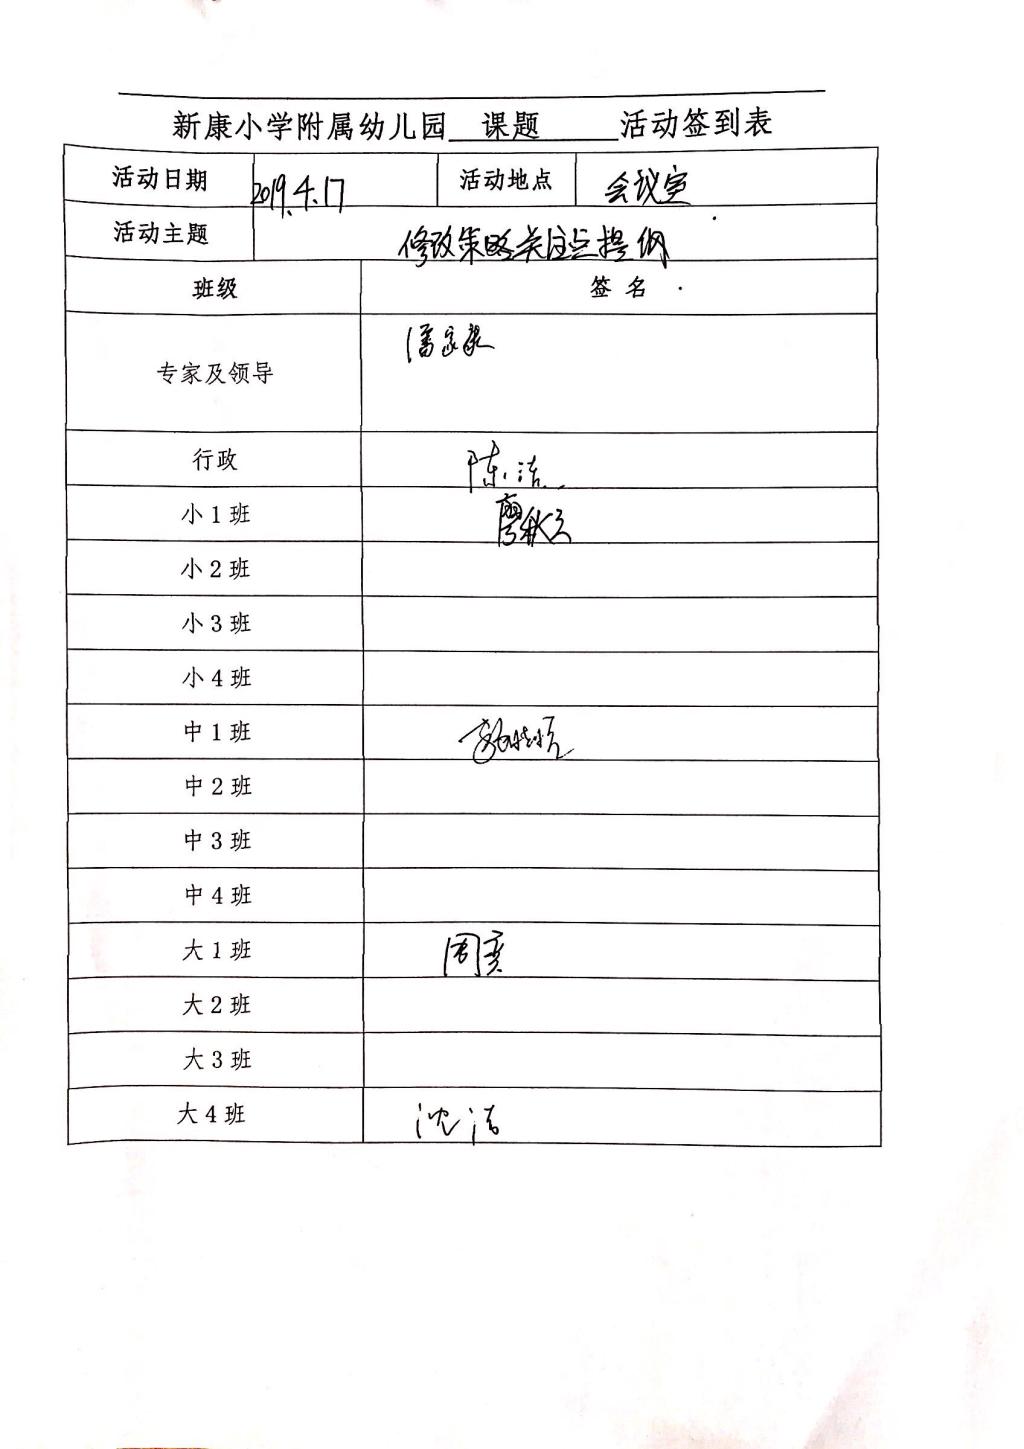 新康小学附属幼儿园 课题 活动签到表
活动日期 2019.4.17 活动地点 会议室
活动主题 修改策略关注点提纲
班级 签名
专家及领导 潘
行政 陈洁
小1班 廖秋
小2班
小3班
小4班
中1班
中2班
中3班
中4班
大1班 周奕
大2班
大3班
大4班 沈洁